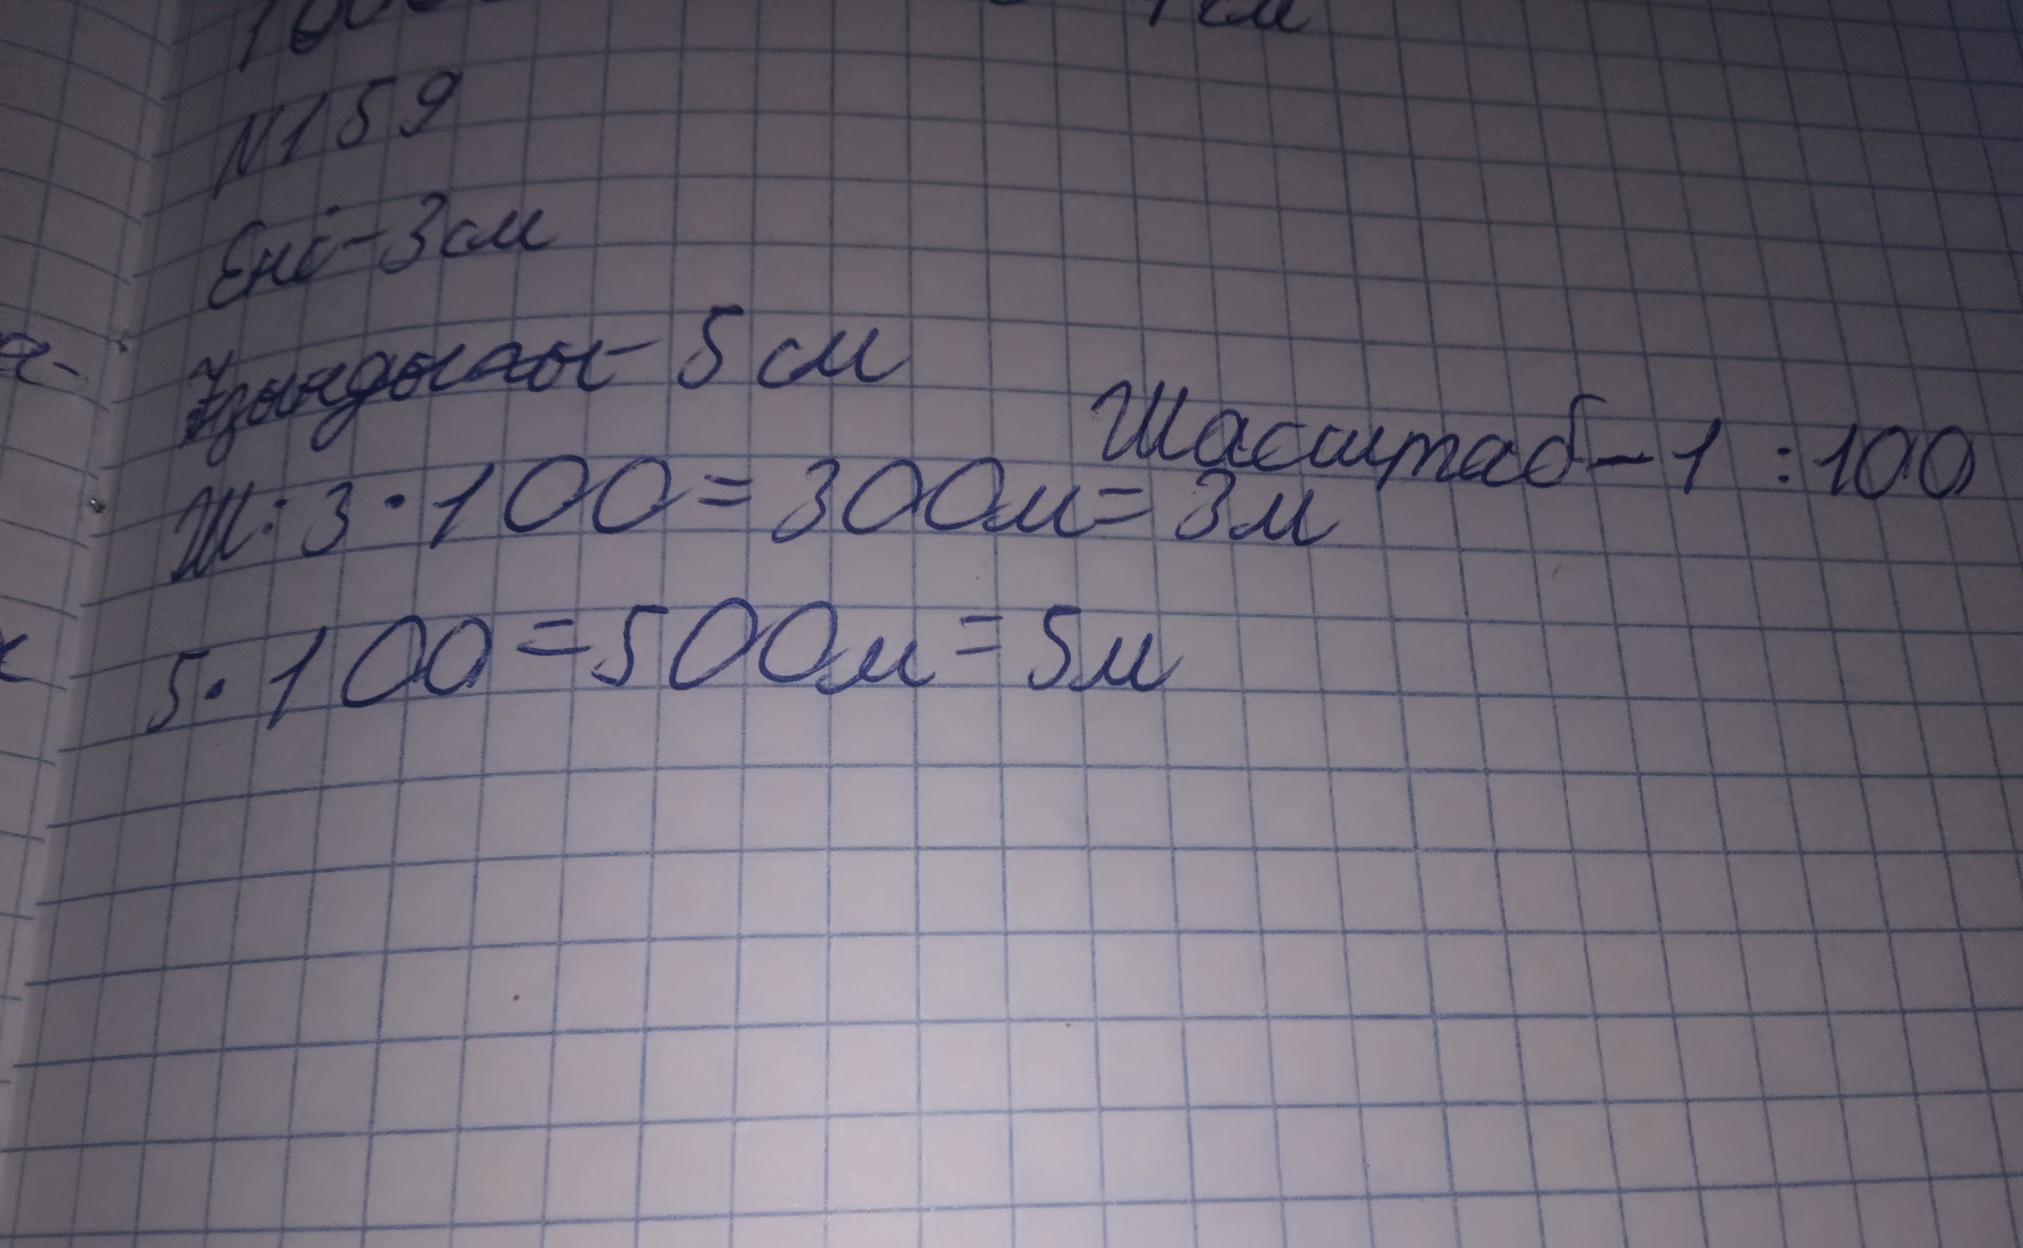 N159
Ені-3см
Ұзындығы-5см
Масштаб-1:100
Ш:3·100=300м=3м
5·100=500м=5м